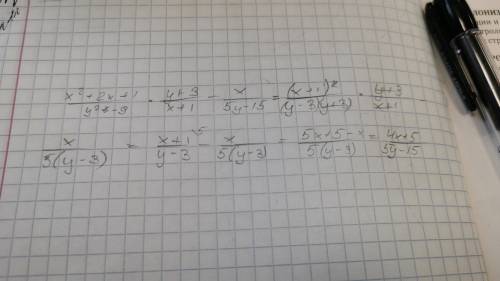 (x²+2x+1)/(y²-9) · (y+3)/(x+1) - x/(5y-15) = (x+1)²/((y-3)(y+3)) · (y+3)/(x+1) -
x/(5(y-3)) = (x+1)^{\5}/(y-3) - x/(5(y-3)) = (5x+5-x)/(5(y-3)) = (4x+5)/(5y-15)